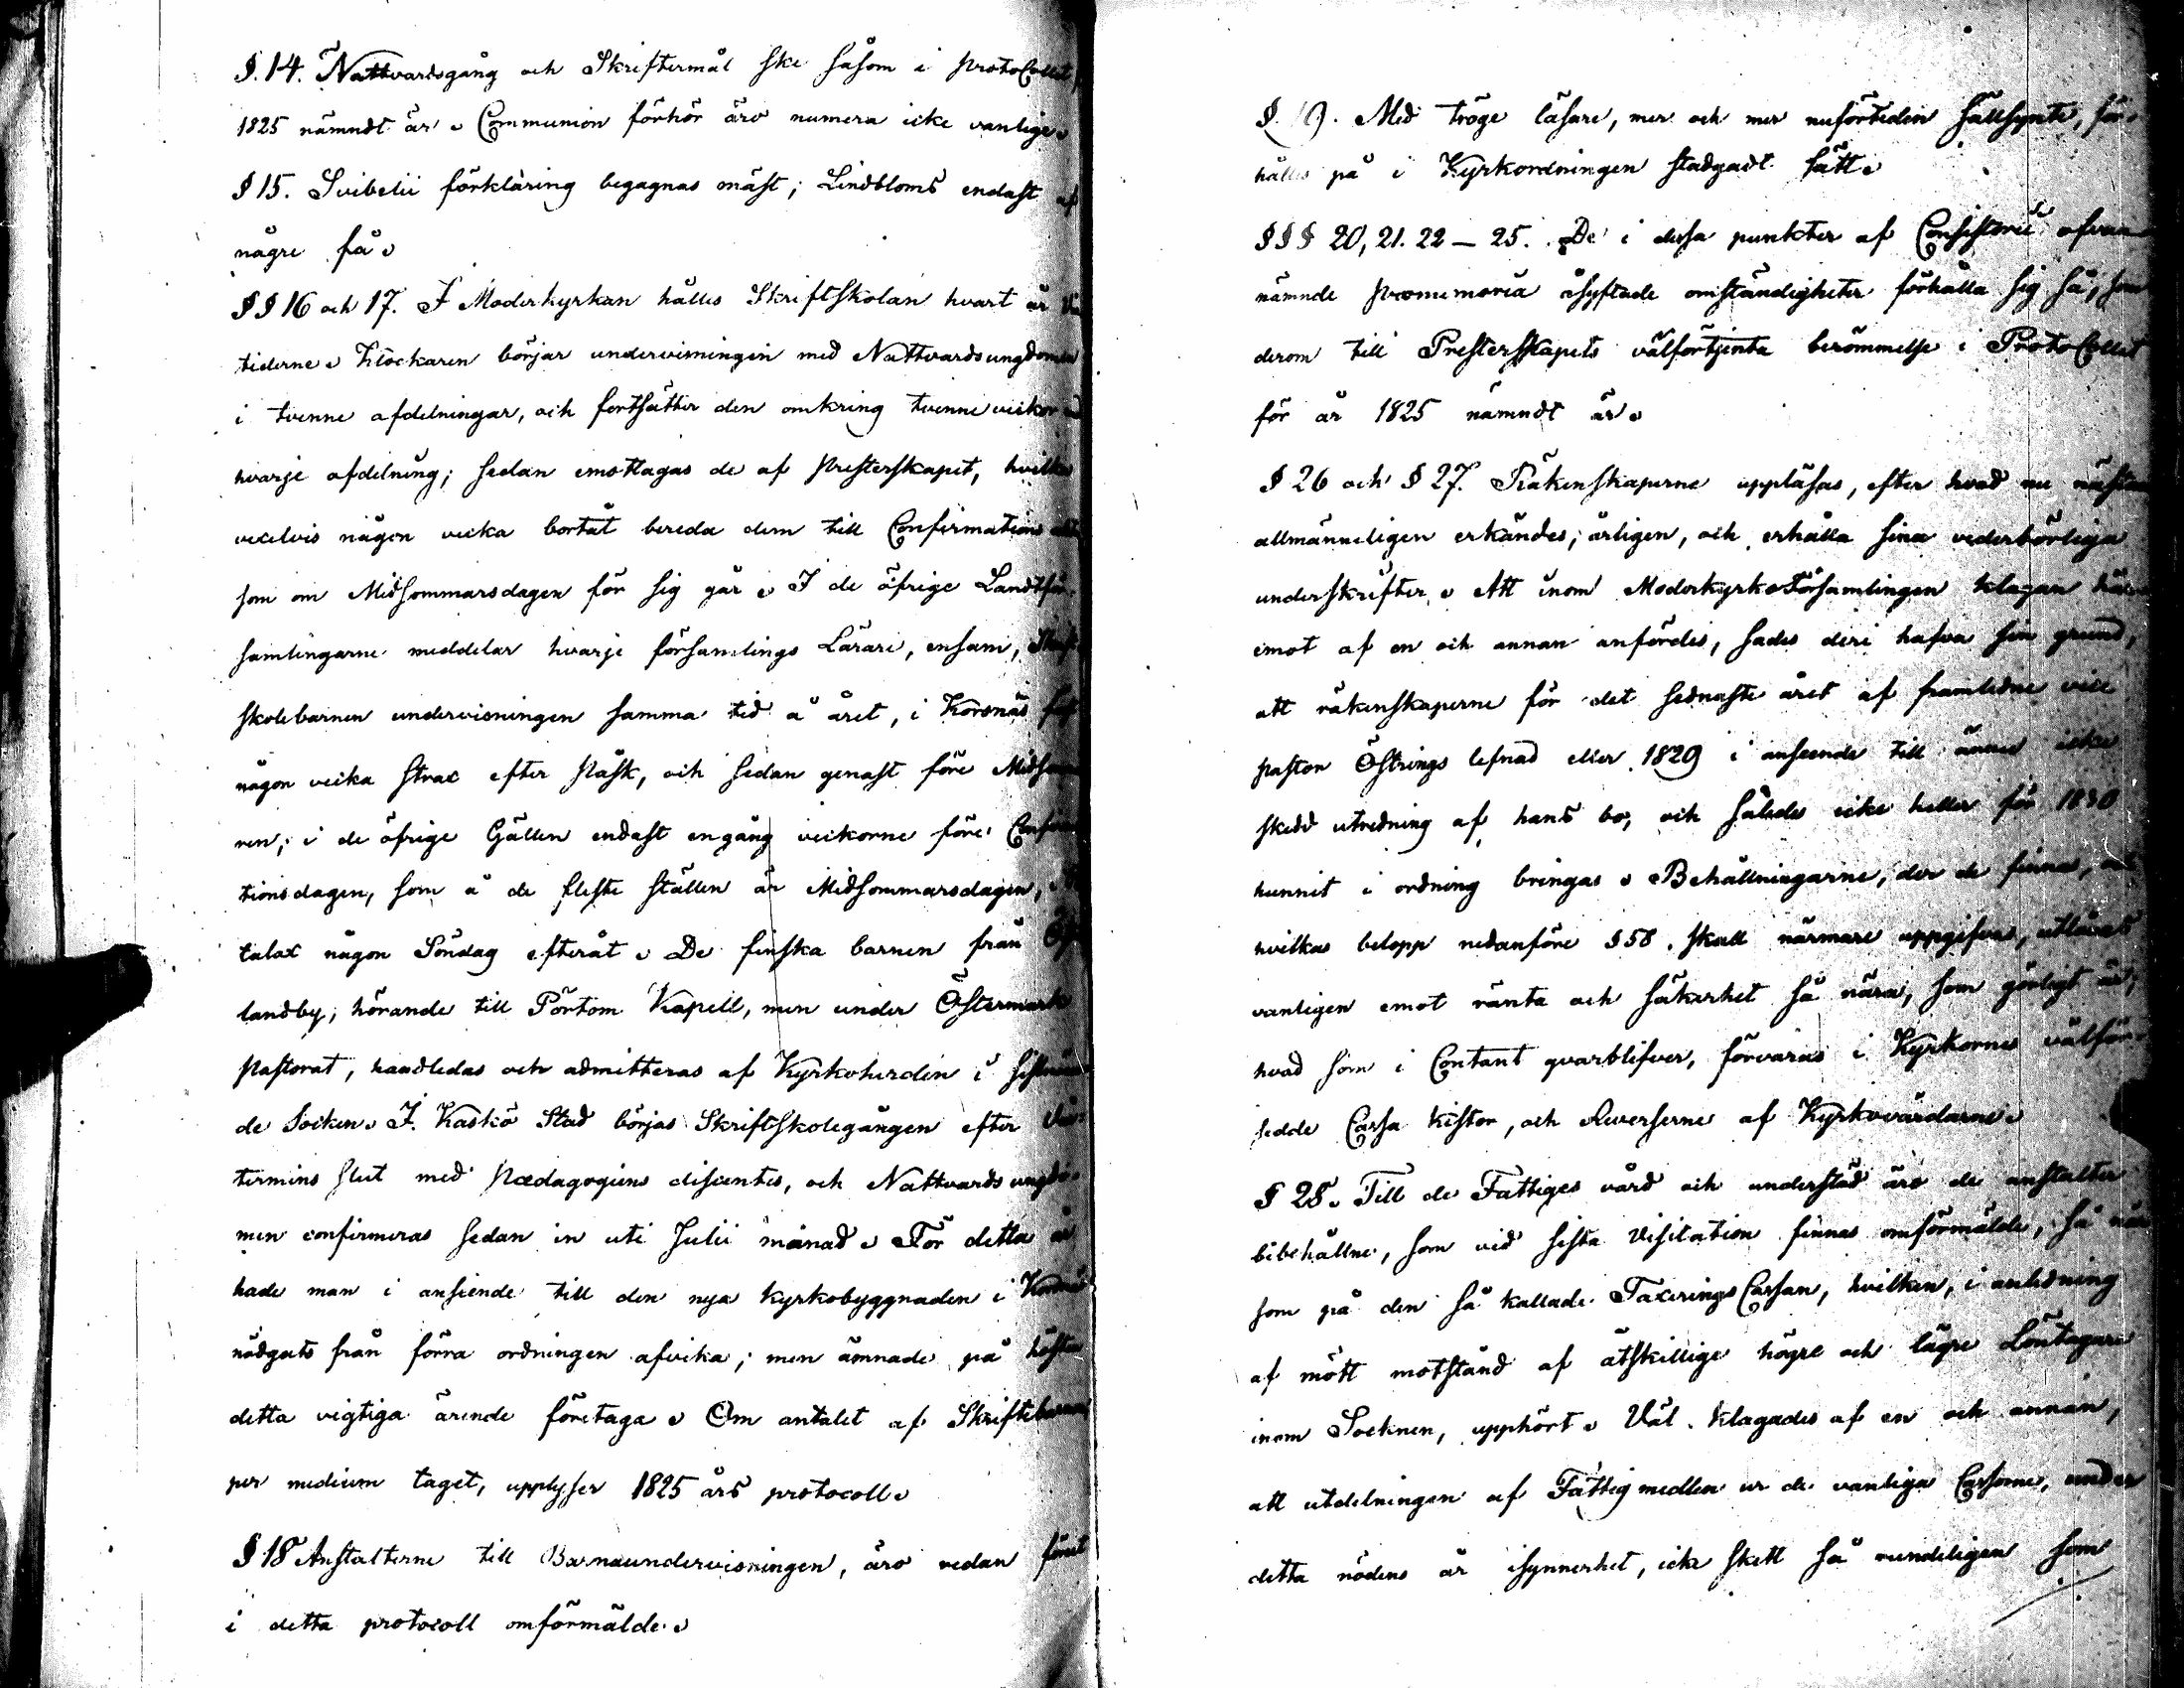 §. 14. Nattvardsgång och Skriftermål ske såsom i protoCollet
1825 nämndt är. Communion förhör äro numera icke vanlige.
§ 15. Svibelii förklaring begagnas mäst; Lindbloms endast af
någre få.
§§ 16 och 17. I Moderkyrkan hålles Skriftskolan hvart år
tiderne. Klockaren börjar undervisningen med Nattvardsungdomen
i tvenne afdelningar, och fortsätter den omkring tvenne veckor
hvarje afdelning; sedan emottagas de af Presterskapet, hvilka
vexelvis någon vecka bortåt bereda dem till Confirmations
som om Midsommarsdagen för sig går. I de öfrige Landtför-
samlingarne meddelar hvarje församlings Lärare, ensam,
skolebarnen undervisningen samma tid å året, i Korsnäs
någon vecka strax efter Påsk, och sedan genast före
ren, i de öfrige Gällen endast en gång veckorne före
tionsdagen, som å de fleste ställen är Midsommarsdagen,
talax någon Söndag efteråt. De finska barnen från
landby, hörande till Pörtom Kapell, men under Östermark
Pastorat, handledas och admitteras af Kyrkoherden i
de Socken. I Kaskö Stad börjas Skriftskolegången efter
termins slut med Pædagogiens discentes, och Nattvards ungdo-
men confirmeras sedan in uti Julii månad. För detta år
hade man i anseende till den nya kyrkobyggnaden i
nödgats från förra ordningen afvika; men ämnade på hösten
detta vigtiga ärende företaga. Om antalet af Skriftebarnen
per medium taget, upplyser 1825 års protocoll.
§ 18 Anstalterne till Barnaundervisningen, äro redan förut
i detta protocoll omförmälde.
§. 19. Med tröge läsare, mer och mer nuförtiden sällsynte, för-
hålles på i Kyrkordningen stadgadt sätt.
§§§ 20, 21. 22 — 25. De i dessa punkter af Consistorii ofvan
nämnde promemoria åsyftade omständigheter förhålla sig så, som
derom till Presterskapets välförtjenta berömmelse i ProtoCollet
för år 1825 nämndt är.
§ 26 och § 27. Räkenskaperne uppläsas, efter hvad nu nästan
allmänneligen erkändes, årligen, och erhålla sina vederbörliga
underskrifter. Att inom ModerkyrkoFörsamlingen klagan här-
emot af en och annan anfördes, sades deri hafva sin grund,
att räkenskaperne för det sednaste året af framledne vice
pastor Östrings lefnad eller 1829 i anseende till ännu icke
skedd utredning af hans bo, och således icke heller för 1830
hunnit i ordning bringas. Behållningarne, der de finnas, och
hvilkas belopp nedanföre § 58. skall närmare uppgifvas, utlånas
vanligen emot ränta och säkerhet så nära, som görligt är;
hvad som i Contant qvarblifver, förvaras i Kyrkornes välför-
sedde Cassa kistor, och Reverserne af Kyrkovärdarne.
§ 28. Till de Fattiges vård och understöd äro de anstalter
bibehållne, som vid sista Visitation finnas omförmälde, så när
som på den så kallade Taxerings Cassan, hvilken, i anledning
af mött motstånd af åtskillige högre och lägre Löntagare
inom Socknen, upphört. Väl klagades af en och annan,
att utdelningen af Fattigmedlen ur de vanliga Cassorne, under
detta nödens år isynnerhet, icke skett så rundeligen som